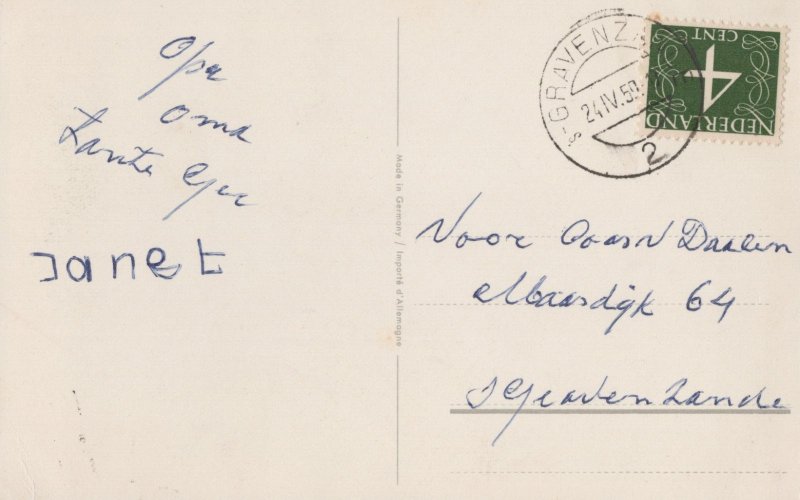 Opa
oma
tante Ger
Janet
Made in Germany / Importé d'Allemagne
's-GRAVENZA
24.IV.59
2
NEDERLAND
4
CENT
Voor Daalen
Maasdijk 64
s Gravenzande